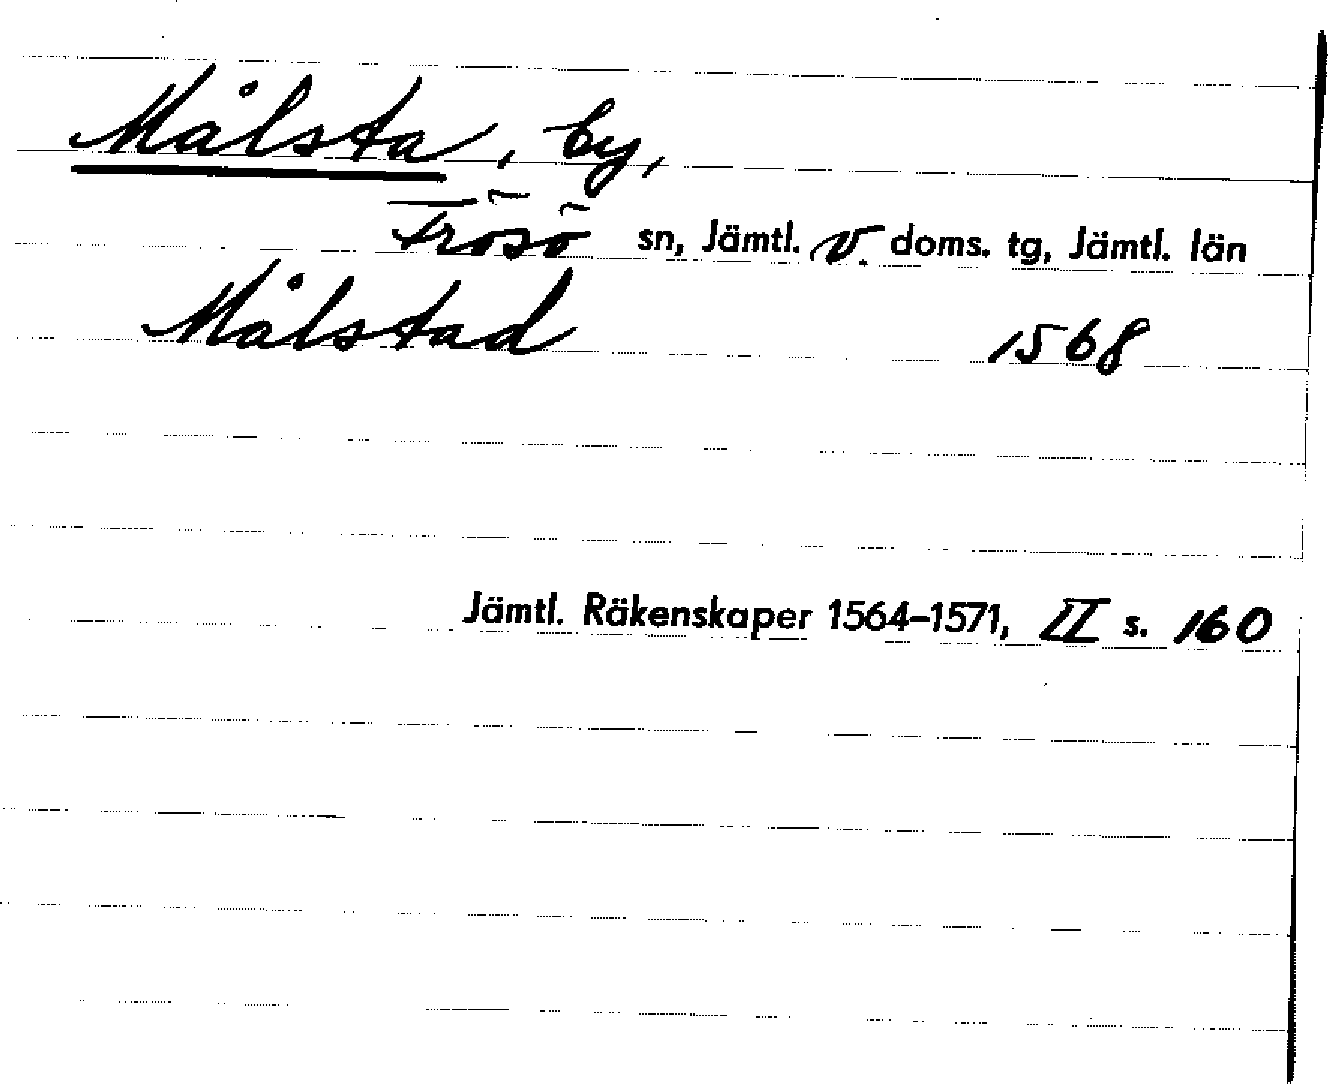 Målsta, by,
Frösö sn, Jämtl. v. doms. tg, Jämtl. län
Målstad 1568
Jämtl. Räkenskaper 1564–1571, II s. 160